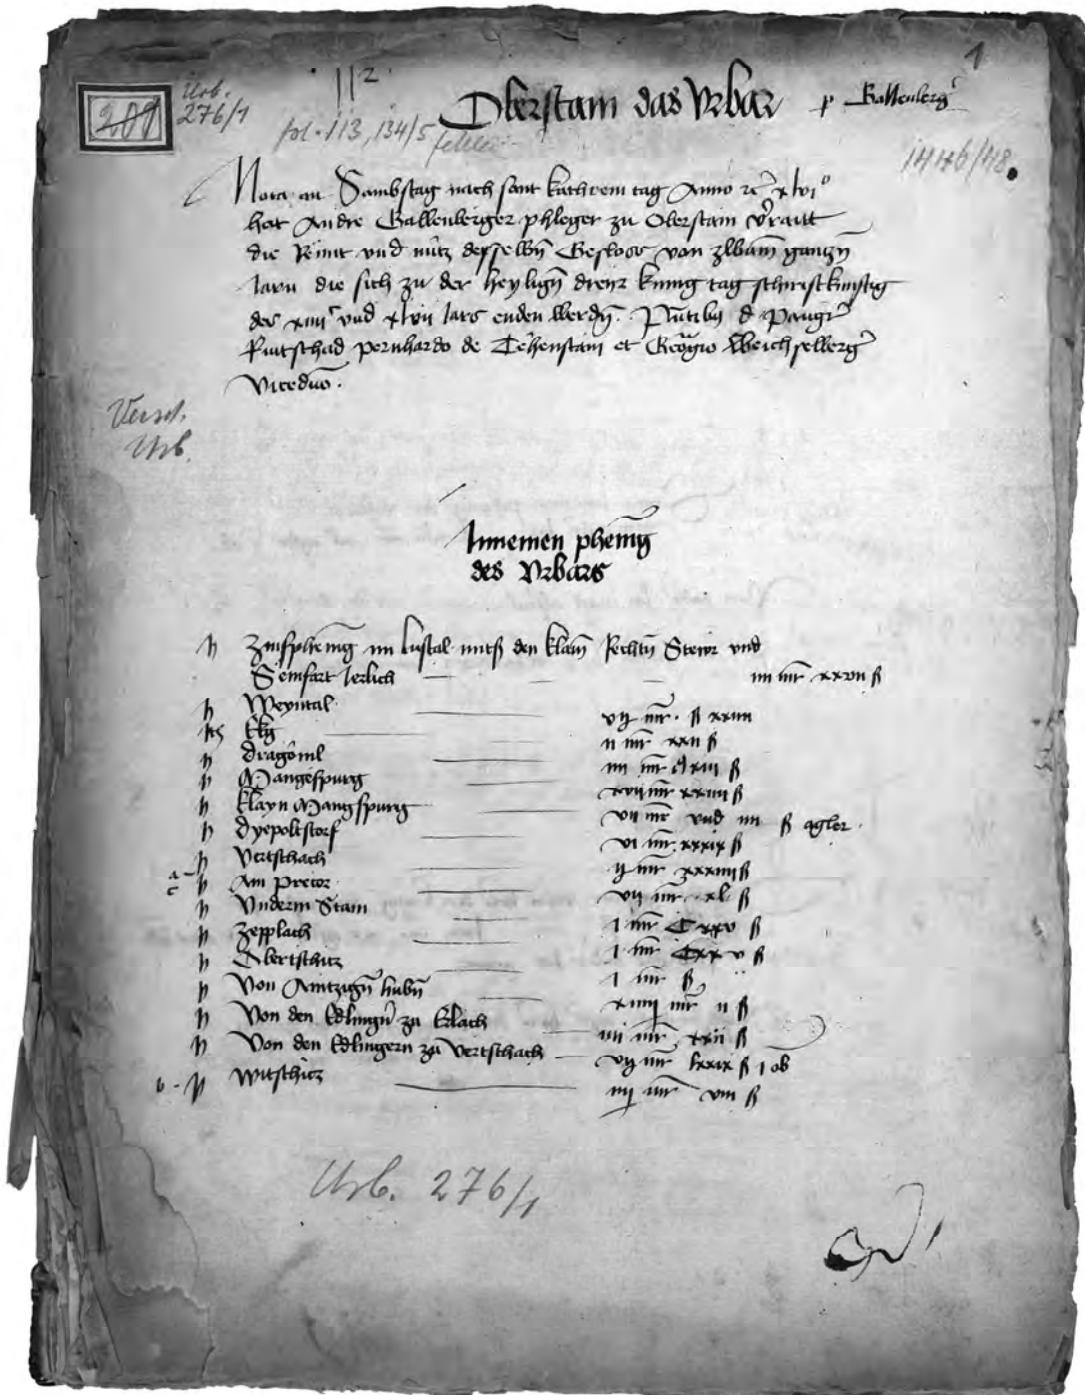 1
Urb.
276/1
112
fol. 113, 134/5 fehlen
Oberstain das Urbar p Gallenbergͬ
1446/48.
Nota an Sambstag nach sant kathrein tag Anno xlvi°
hat Andre Gallenberger phleger zu Oberstain v̊raitt
die Rennt und nütz desselbn̄ Geslosz von zwain ganczn̄
Iarn die sich zu der heylign̄ dreir kunig tag schiristkunftig
des und xlvii Iars enden werdn̄. p̄n̄tibus d
pernhardo de Tehenstain et Georgio Weichselbergͬ
Viceduo.
Versch.
Urb.
Innemen phenīg
des Urbars
Zinsphenīg im lustal mits den klain Rechtn̄ Stewr und
Semfart Ierlich iiii mr xxvii ß
Weyntal vij mr ß xxiiii
Ekg ii mr xxii ß
dragoml iiii mr xiii ß
Mangespurg xvii mr xxiiii ß
klayn Mangspurg vii mr und iiii ß agler.
dyepoltstorf vi mr xxxix ß
Vertschach ij mr xxxiiii ß
a c Am Pretor vij mr xl ß
Underm Stain i mr C xxv ß
Zepplach i mr Cxxv ß
Obertschicz i mr ß
Von Ainczign̄ hubn̄ xiiij mr ii ß
Von den Edlingn̄ zu Erlach iii mr xxii ß
Von den Edlingern zu Vertschach vij mr lxxix ß i ob
b Witschicz iiij mr viii ß
Urb. 276/1